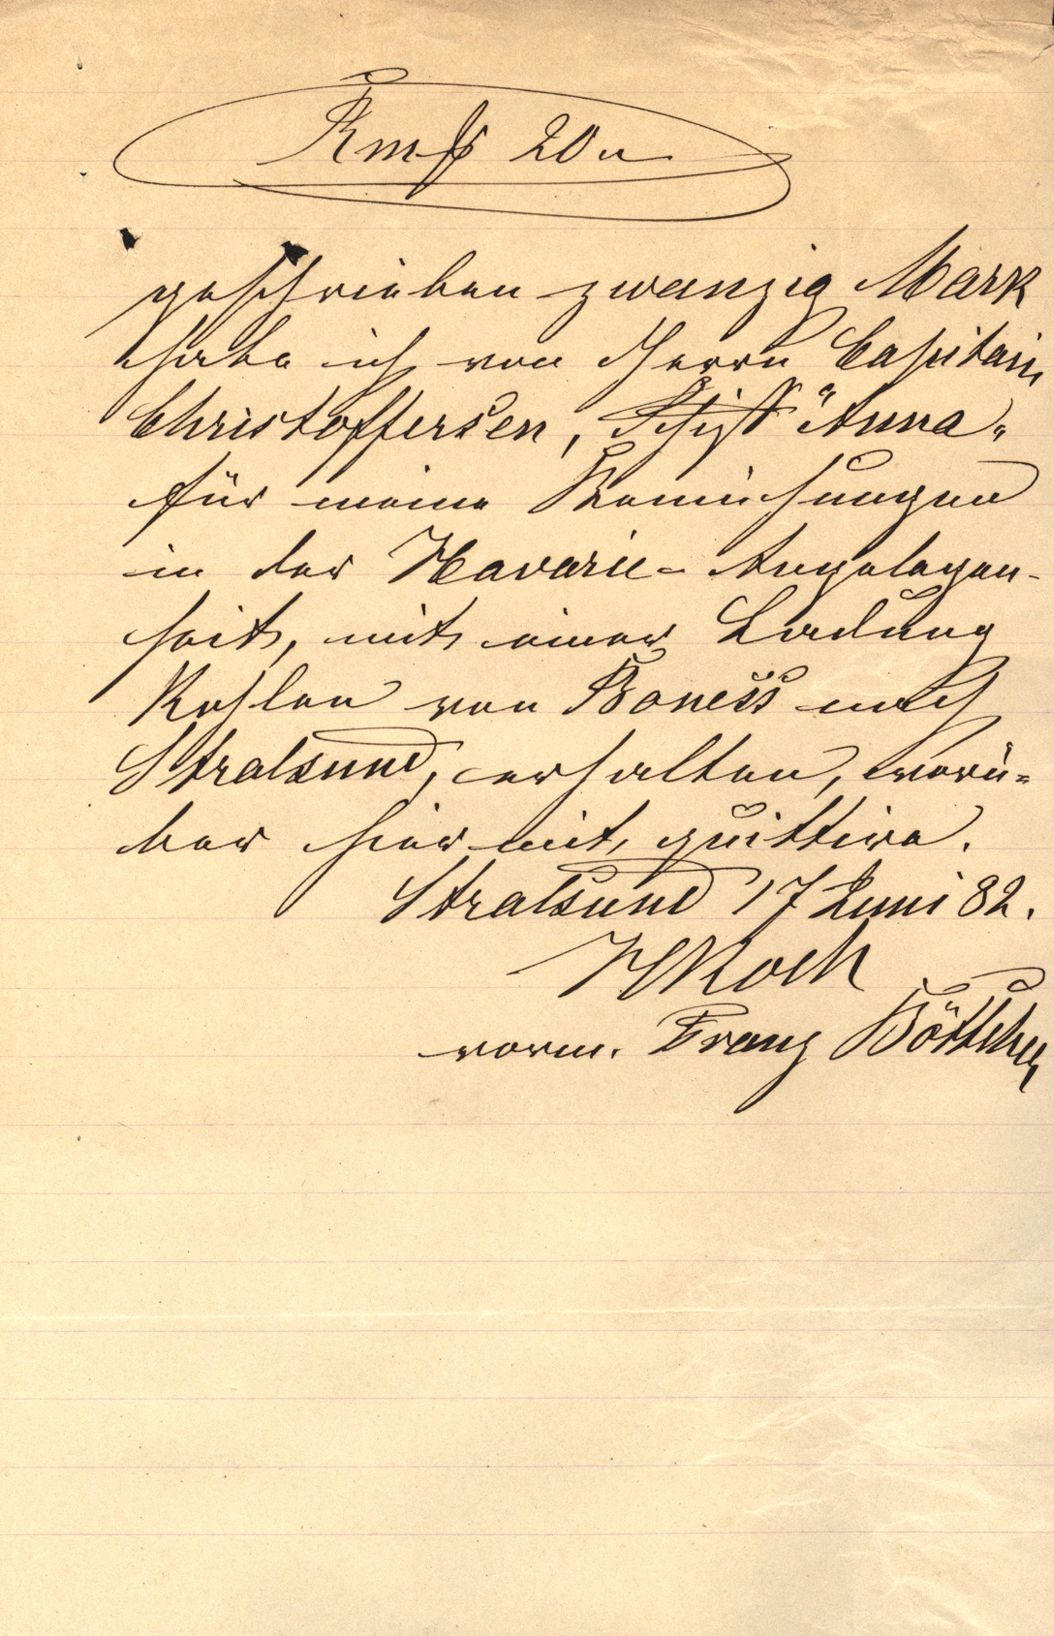 Rm 20 "
geschrieben zwanzig Mark
habe ich von Herrn Capitain
Christoffersen, Schiff "Anna"
für meine Bemühungen
in der Havarie-Angelegen-
heit, mit einer Ladung
Kohlen von Boness nach
Stralsund, erhalten, worü-
ber hiermit quittire.
Stralsund 17 Juni 82.
HKoch
vorm. Franz Böttcher